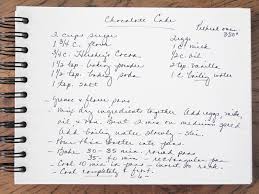 Chocolate Cake
Preheat oven
350°
2 cups sugar
2 eggs
1 3/4 c. flour
1 c milk
3/4 c. Hershey's Cocoa
1/2 c oil
1 1/2 tsp. baking powder
2 tsp. vanilla
1 1/2 tsp. baking soda
1 c boiling water
1 tsp salt
- Grease & flour pans
- Mix dry ingredients together Add eggs, milk,
oil & van. Beat 2 min on medium speed
Add boiling water slowly - stir.
- Pour thin batter into pans.
- Bake 30 - 35 min. round pans
35 - 40 min - rectangular pan
- Cool 10 min in pans - invert to rack.
- Cool completely & frost.